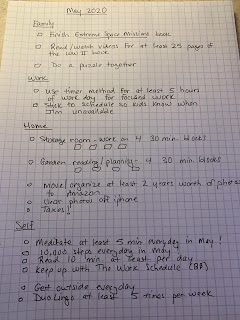 May 2020
Family
Finish Extreme Space Missions book
Read/watch videos for at least 25 pages of
the WW II book
Do a puzzle together
Work
Use timer method for at least 5 hours
of work day for focused work
Stick to schedule so kids know when
I'm unavailable
Home
Storage room - work on 4 30 min. blocks
Garden reading/planning - 4 30 min. blocks
move/organize at least 2 years worth of photos
to Amazon
Clear photos off iPhone
Taxes!
Self
Meditate at least 5 min everyday in May!
10,000 steps everyday in May
Read 10 min. at least per day
Keep up with The Work Schedule
Get outside everyday
DuoLingo at least 5 times per week